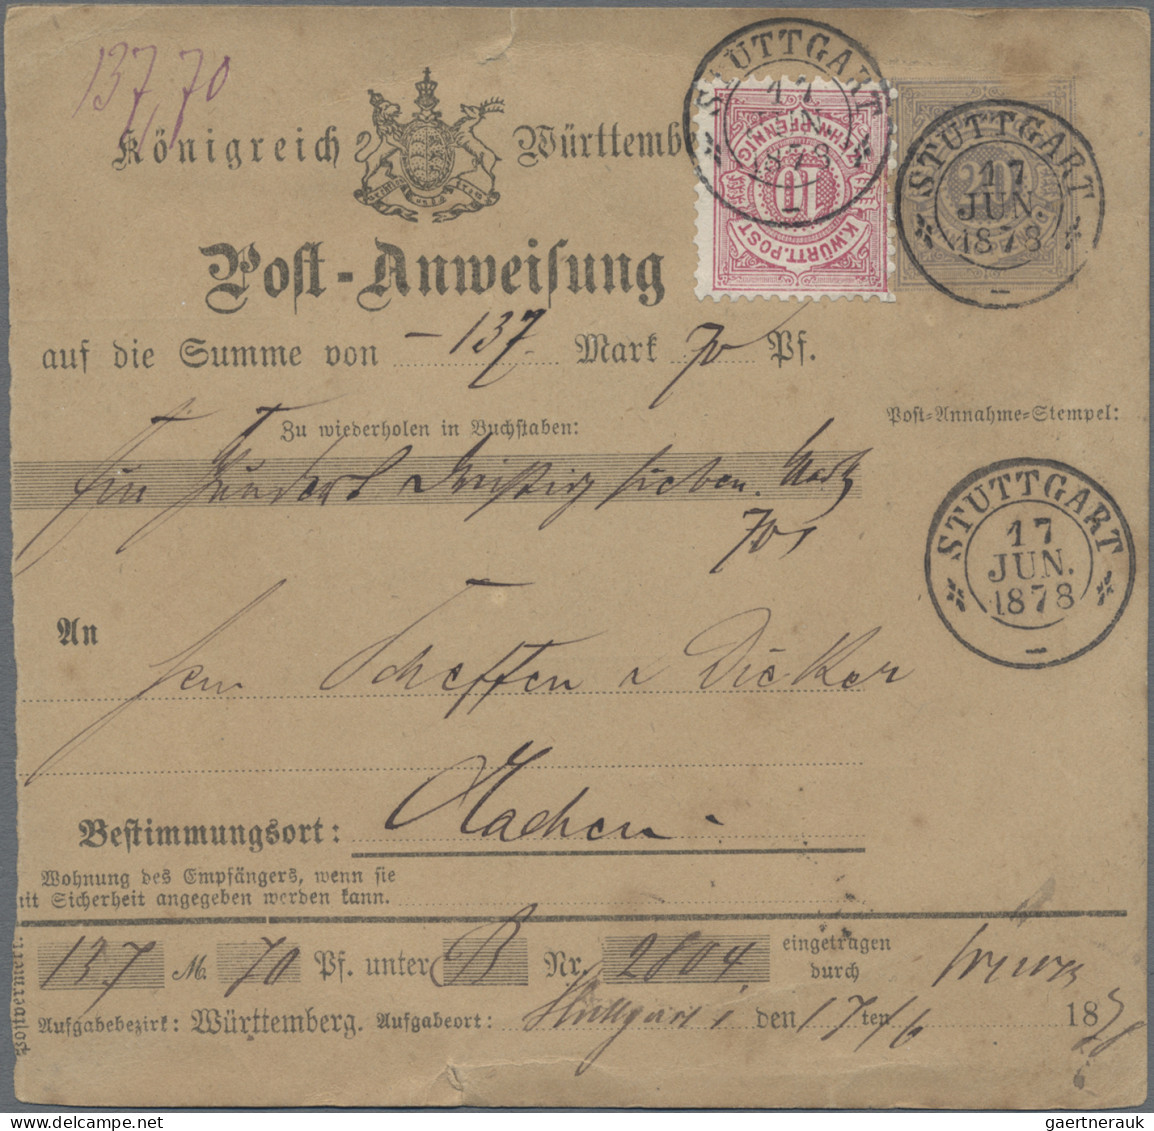 137,70
Königreich Württemb
STUTTGART
17
JUN.
1878
K.WÜRTT.POST
10
ZEHN PFENNIG
STUTTGART
17
JUN.
1878
20
Post-Anweisung
auf die Summe von -137. Mark 70 Pf.
Post-Annahme-Stempel:
Zu wiederholen in Buchstaben:
Ein Hundert dreißig sieben Mark
70
STUTTGART
17
JUN.
1878
An
Scheffen & Dicker
Bestimmungsort: Aachen.
Wohnung des Empfängers, wenn sie
mit Sicherheit angegeben werden kann.
Postvermerk.
137 M. 70 Pf. unter B Nr. 2804. eingetragen
durch
Aufgabebezirk: Württemberg. Aufgabeort: Stuttgart den 17ten /6 1878
gaertnerauk